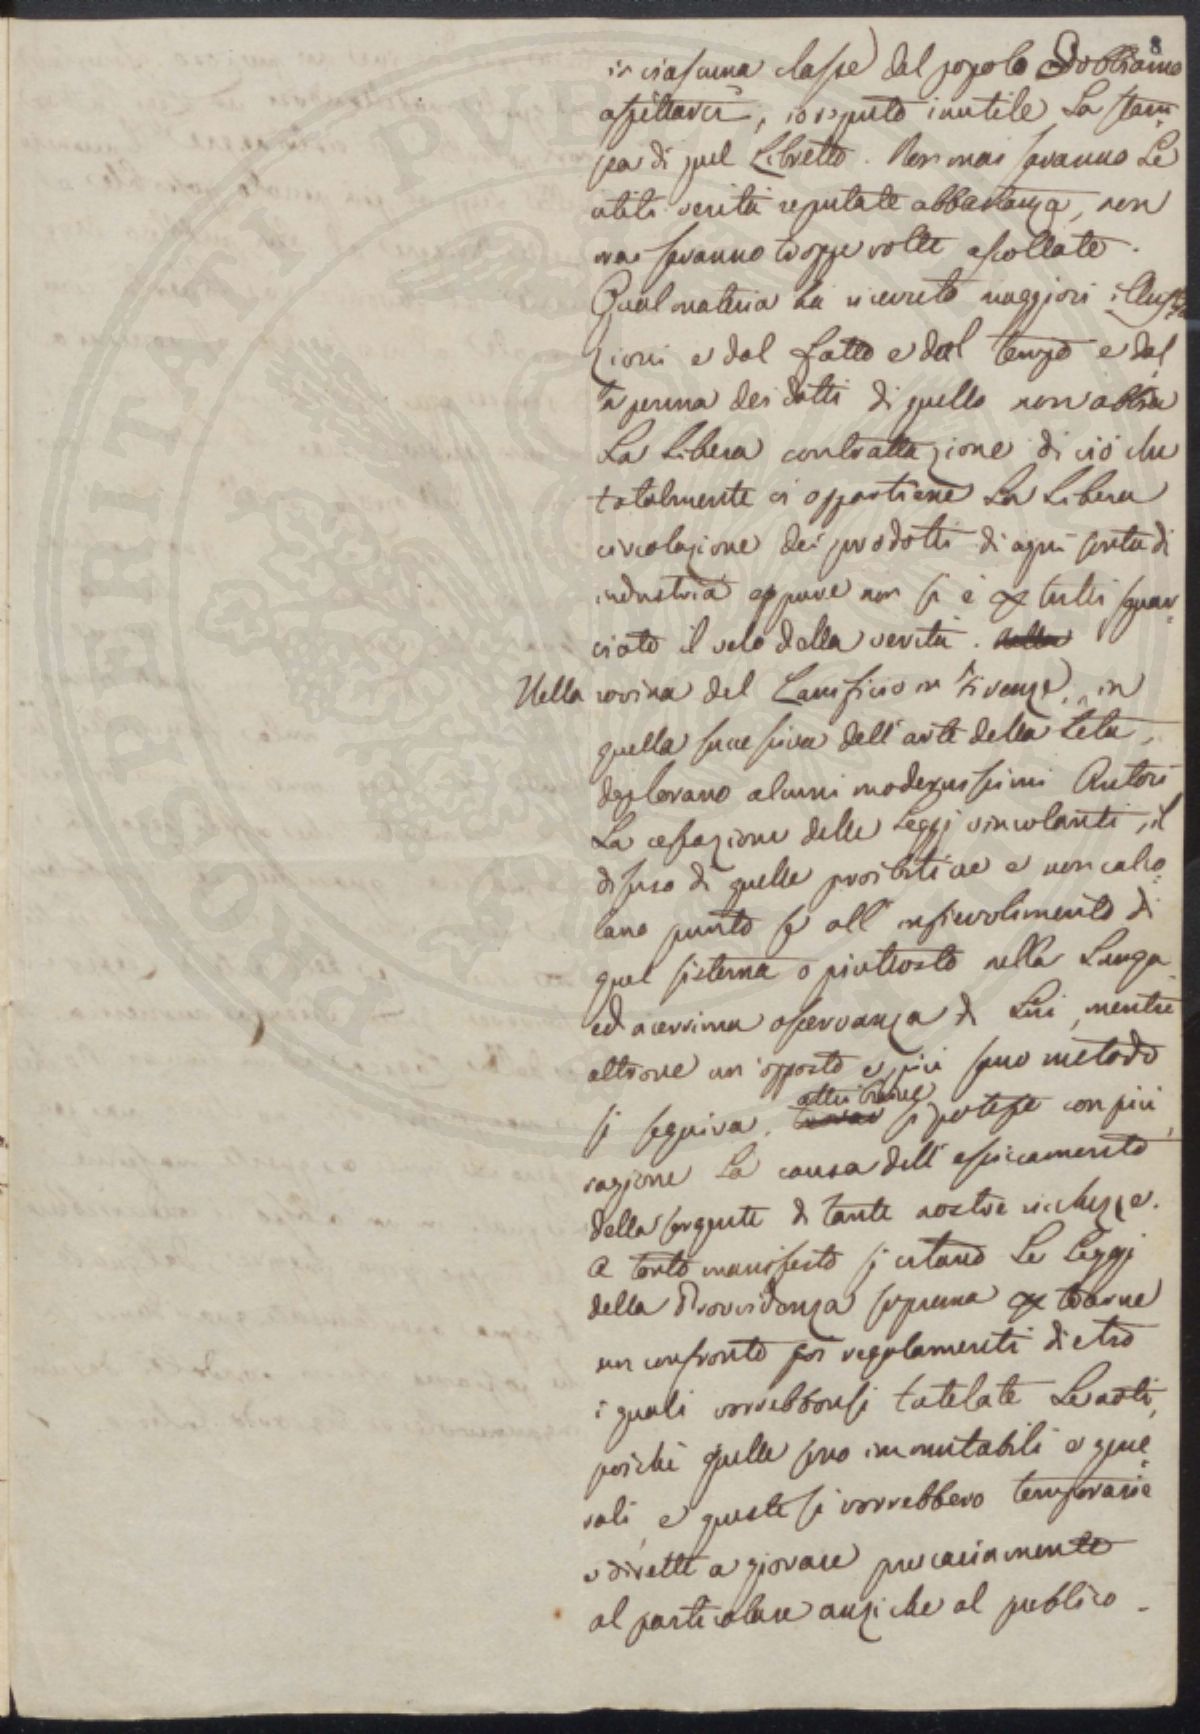 8
in ciascuna classe dal popolo Dobbiamo
aspettarci, io reputo inutile La stam=
pa di quel Libretto. Non mai saranno Le
utili verità reputate abbastanza, non
mai saranno troppe volte ascollate.
Qual materia ha ricevuto maggiori illustra
zioni e dal fatto e dal tempo e dal
la penna dei dotti di quello non abbia
La Libera contrattazione di ciò che
totalmente ci appartiene La Libera
circolazione dei prodotti di ogni sorta di
industria eppure non si è tutti squar=
ciato il velo della verità. nella
Nella rovina del Lanificio in Firenze, in
quella successiva dell'arte della Seta,
deplorano alcuni modernissimi Autori
La cessazione delle Leggi vincolanti, il
disuso di quelle proibitive e non calco=
lano punto se all'infievolimento di
quel sistema o piuttosto nella Lunga
ed acerrima osservanza di Lui, mentre
altrove un'opposto e più sano metodo
si seguiva, attribuire si potesse con più
ragione La causa dell'essiccamento
della sorgente di tante nostre ricchezze.
A torto manifesto si citano Le Leggi
della Provvidenza suprema trarne
un confronto poi regolamenti dietro
i quali vorrebbonsi tutelate Le arti,
poiché quelle sono immutabili e gene=
rali, e queste si vorrebbero temporarie
e dirette a giovare precariamente
al particolare anziche al pubblico.